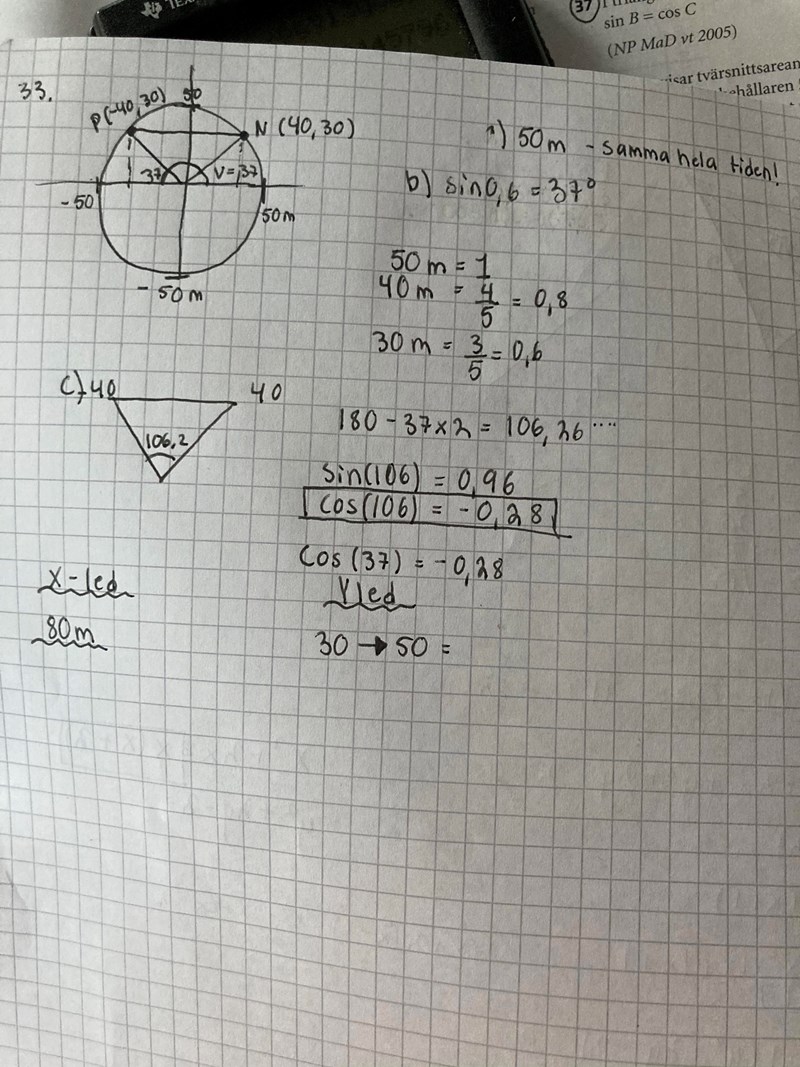 TEX
37
sin B = cos C
(NP MaD vt 2005)
isar tvärsnittsarean
hållaren
33.
P(-40,30)
50
N (40,30)
37
V=37
-50
50m
- 50 m
a) 50 m - samma hela tiden!
b) sin 0,6 = 37°
50 m = 1
40 m = 4/5 = 0,8
30 m = 3/5 = 0,6
C) 40
40
106,2
180 - 37×2 = 106,26 ....
Sin(106) = 0,96
Cos(106) = -0,28
Cos (37) = -0,28
X-led
Yled
80m
30 → 50 =